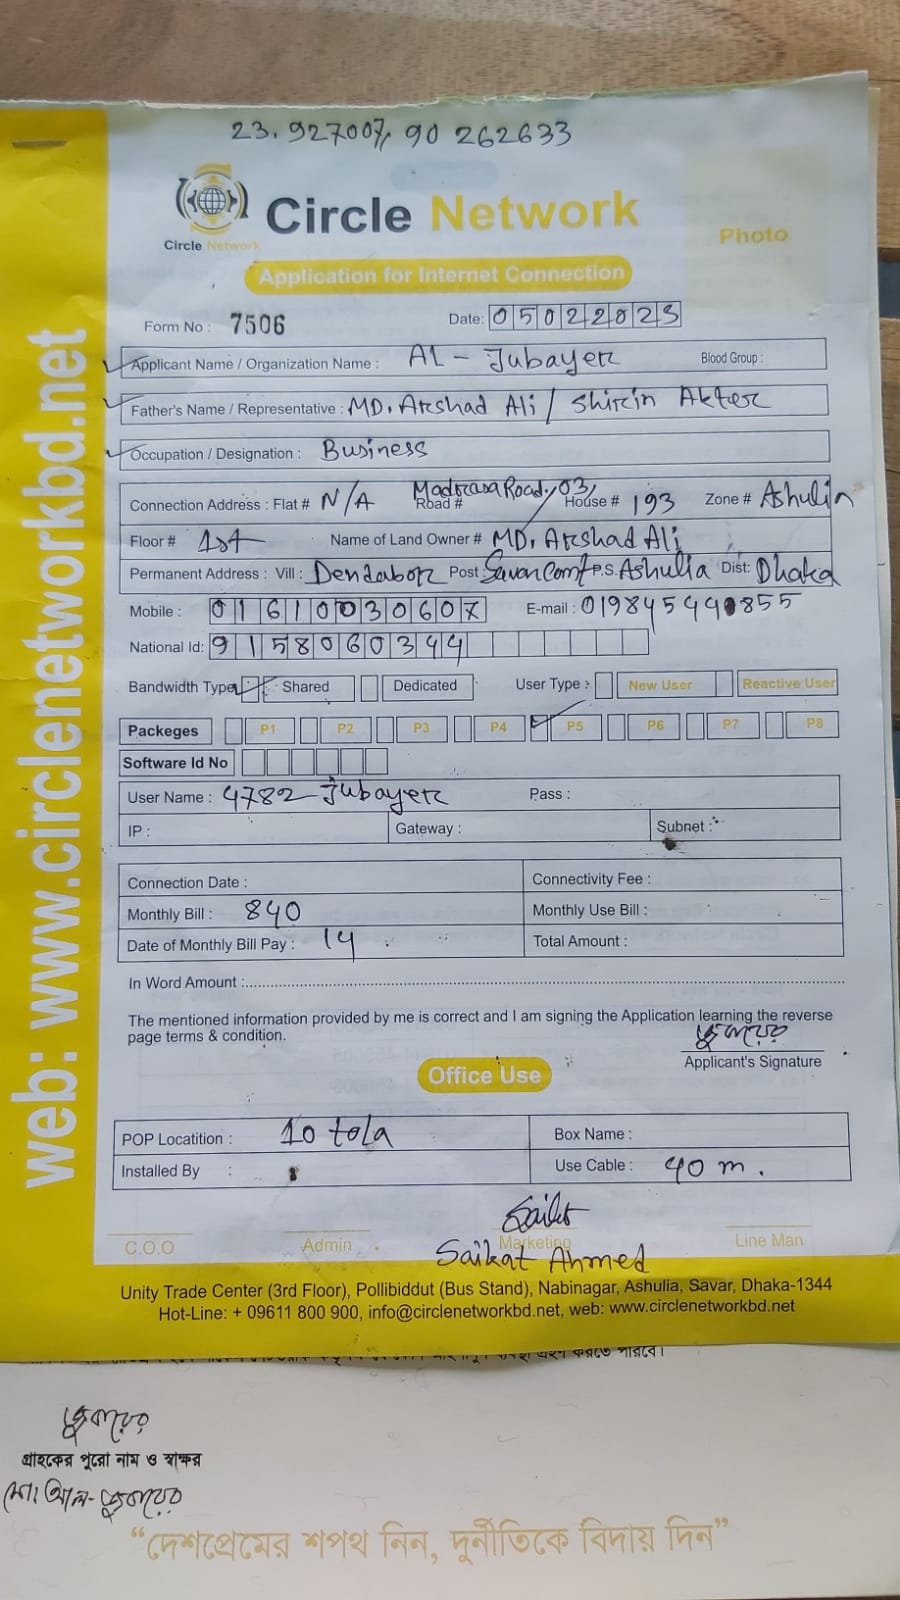 23.927007, 90 262633
Circle Network
Circle Network
Photo
Application for Internet Connection
Form No : 7506 Date: 05022023
Applicant Name / Organization Name : AL - Jubayer Blood Group :
Father's Name / Representative : MD. Arshad Ali / Shirin Akter
Occupation / Designation : Business
Connection Address : Flat # N/A Road # Madrasa Road, 03, House # 193 Zone # Ashulia
Floor # 1st Name of Land Owner # MD. Arshad Ali
Permanent Address : Vill : Dendabor Post : Savar Cant P.S. Ashulia Dist: Dhaka
Mobile : 01610030607 E-mail : 0198459
National Id: 9158060344
Bandwidth Type Shared Dedicated User Type : New User Reactive User
Packeges P1 P2 P3 P4 P5 P6 P7 P8
Software Id No
User Name : 4782-Jubayer Pass :
IP : Gateway : Subnet :
Connection Date : Connectivity Fee :
Monthly Bill : 840 Monthly Use Bill :
Date of Monthly Bill Pay : 14 Total Amount :
In Word Amount :
The mentioned information provided by me is correct and I am signing the Application learning the reverse
page terms & condition.
জুবায়ের
Applicant's Signature
Office Use
POP Locatition : 10 tola Box Name :
Installed By : Use Cable : 40 m.
C.O.O Admin Marketing Line Man
Saikat Ahmed
Unity Trade Center (3rd Floor), Pollibiddut (Bus Stand), Nabinagar, Ashulia, Savar, Dhaka-1344
Hot-Line: + 09611 800 900, info@circlenetworkbd.net, web: www.circlenetworkbd.net
web: www.circlenetworkbd.net
করতে পারবে।
জুবায়ের
গ্রাহকের পুরো নাম ও স্বাক্ষর
মোঃ আল-জুবায়ের
“দেশপ্রেমের শপথ নিন, দুর্নীতিকে বিদায় দিন”